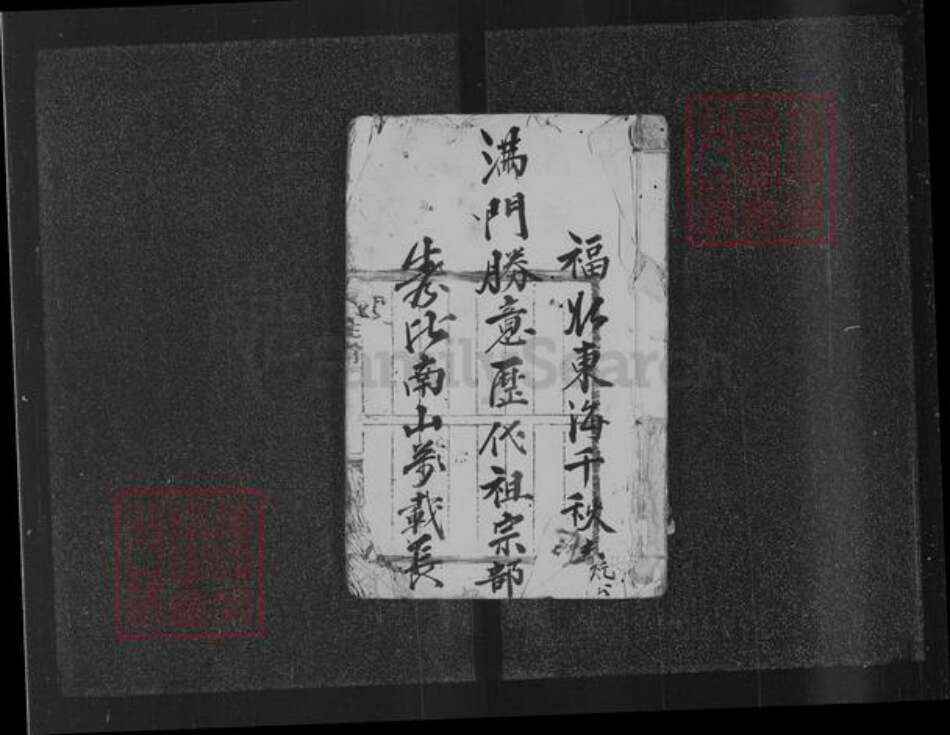 福如東海千秋
満門勝意歷代祖宗部
壽比南山萬載長
FamilySearch